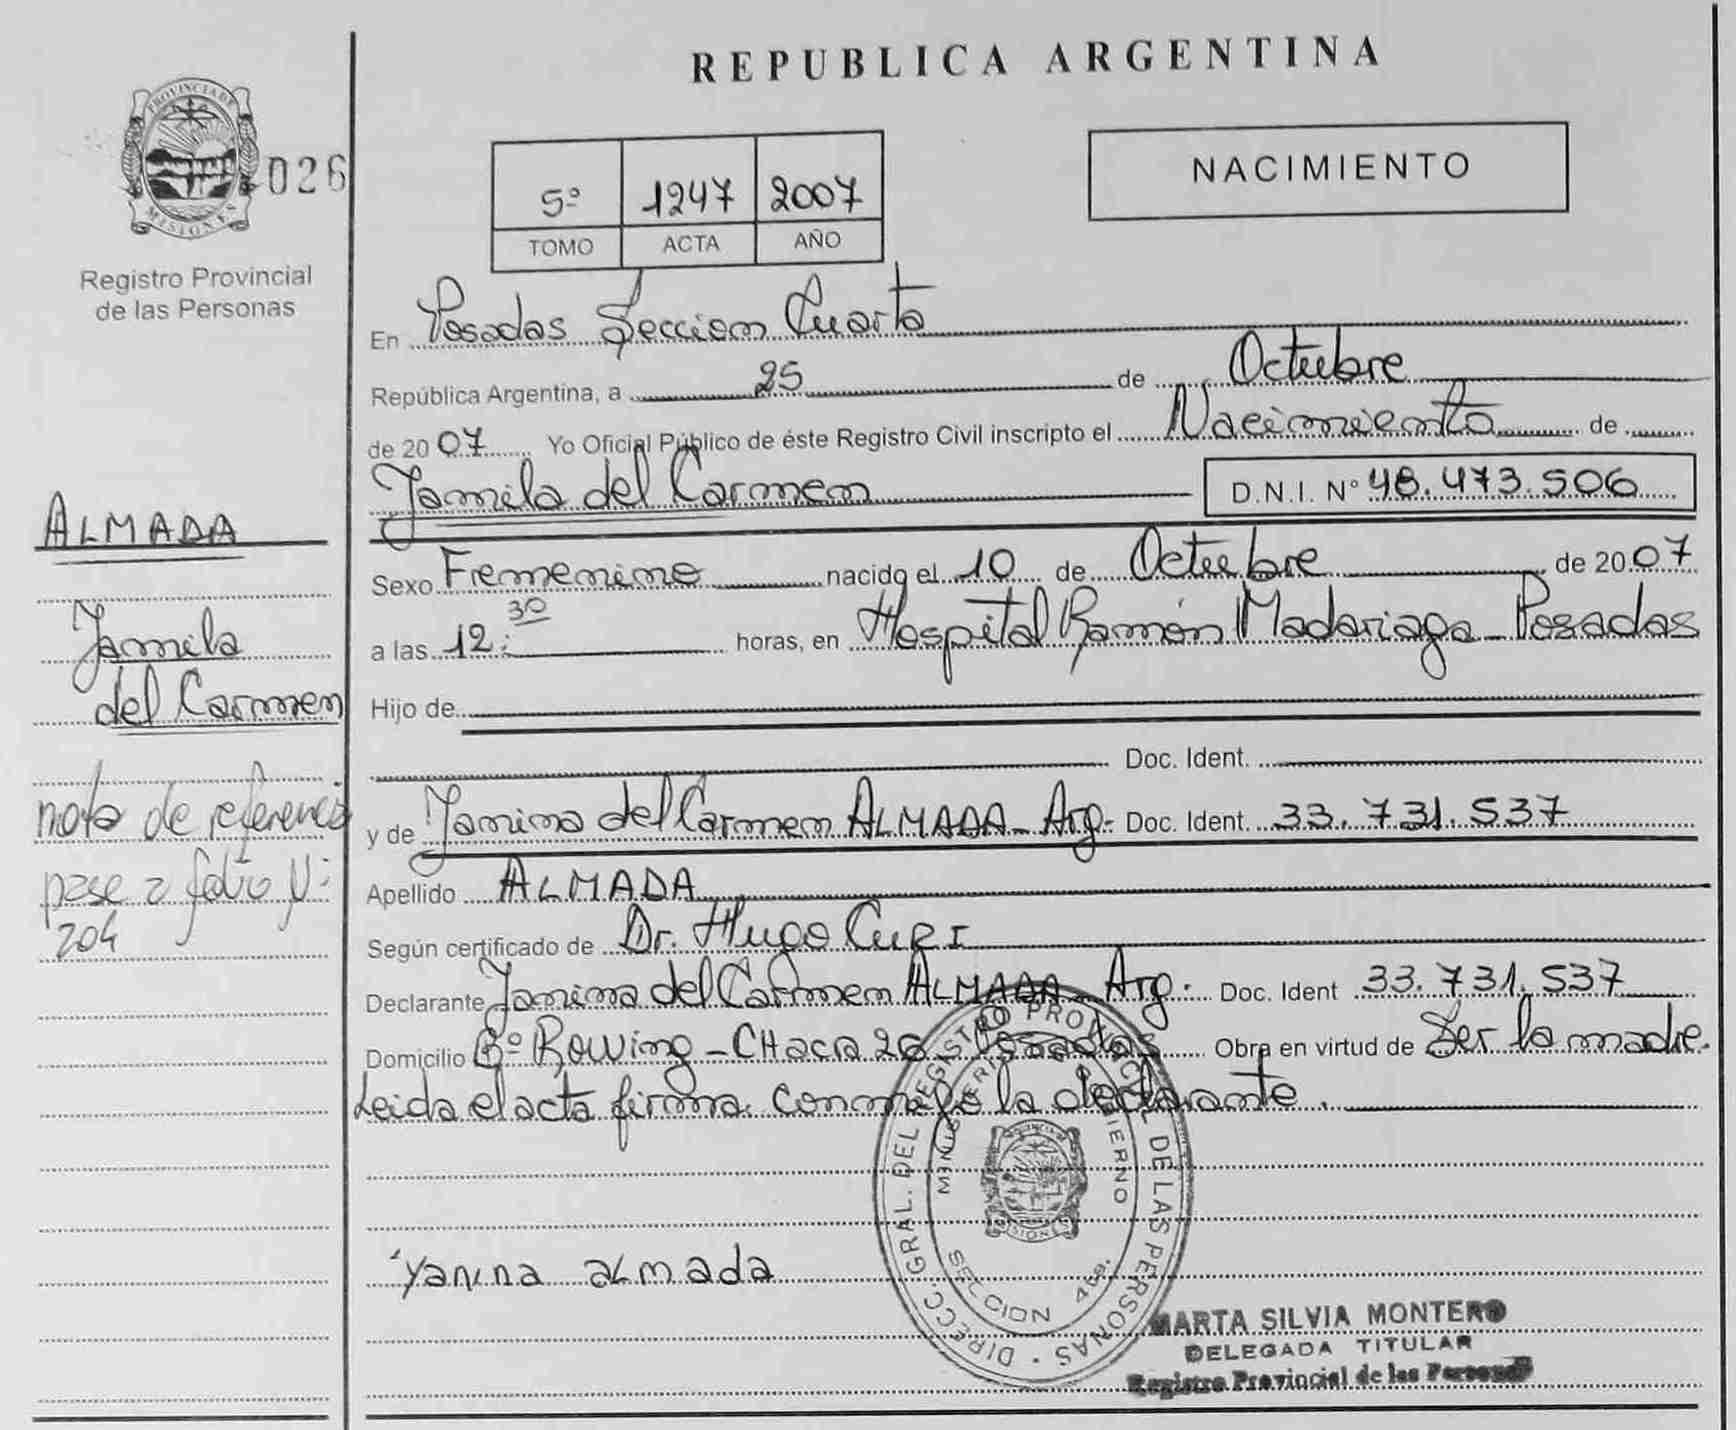 REPUBLICA ARGENTINA
PROVINCIA DE
MISIONES
026
Registro Provincial
de las Personas
5º 1247 2007
TOMO ACTA AÑO
NACIMIENTO
En Posadas Seccion Cuarta
República Argentina, a 25 de Octubre
de 2007 Yo Oficial Público de éste Registro Civil inscripto el Nacimiento de
Yamila del Carmen D.N.I. Nº 48.473.506
ALMADA
Yamila
del Carmen
nota de referencia
pase a folio Nº:
204
Sexo Femenino nacido el 10 de Octubre de 2007
a las 12:30 horas, en Hospital Ramón Madariaga - Posadas
Hijo de
Doc. Ident.
y de Yanina del Carmen ALMADA - Arg. Doc. Ident. 33.731.537
Apellido ALMADA
Según certificado de Dr. Hugo CURI
Declarante Yanina del Carmen ALMADA - Arg. Doc. Ident 33.731.537
Domicilio Bº Rowing - CHACRA 26 - Posadas Obra en virtud de Ser la madre.
Leida el acta firma conmigo la declarante.
DIRECC. GRAL. DEL REGISTRO PROVINCIAL DE LAS PERSONAS
MINISTERIO GOBIERNO
SECCION 4ta.
MISIONES
Yanina almada
MARTA SILVIA MONTERO
DELEGADA TITULAR
Registro Provincial de las Personas